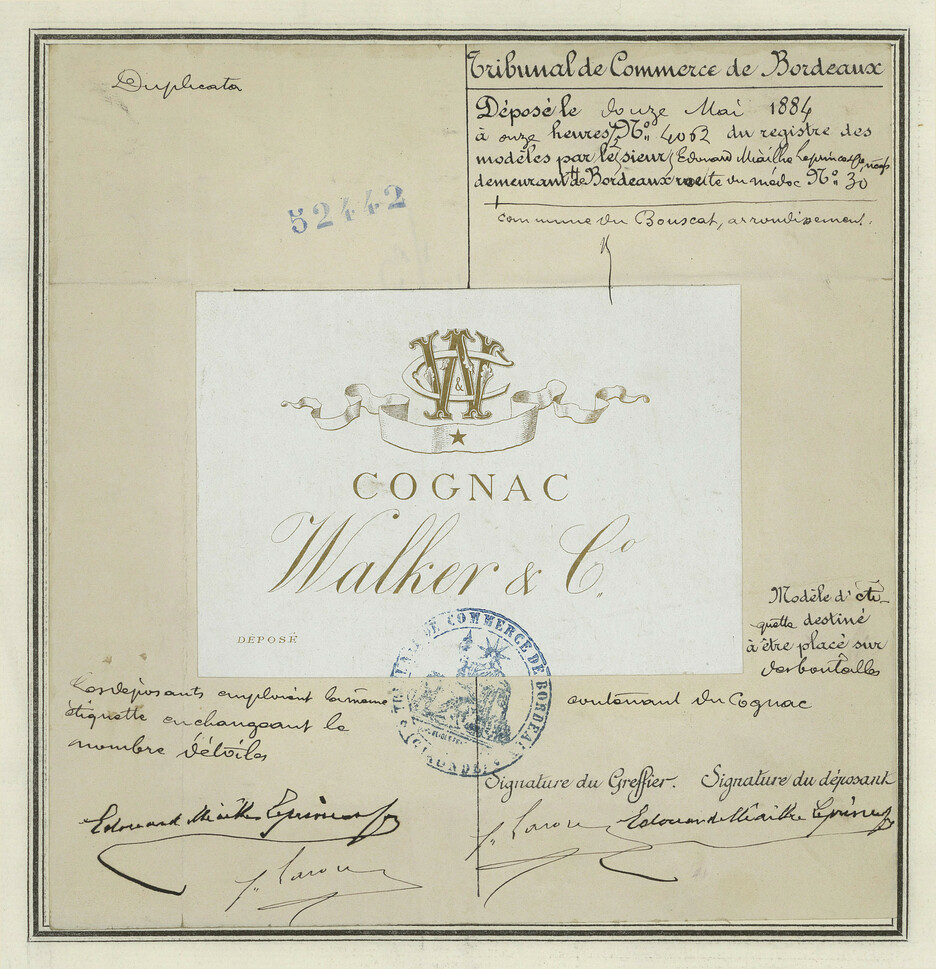 Duplicata
52442
Tribunal de Commerce de Bordeaux
Déposé le douze Mai 1884
à onze heures ½ No. 4062 du registre des
modèles par le sieur Edouard Miailhe Leprince &
demeurant de Bordeaux route du médoc No. 30
commune du Bouscat, arrondissement.
W & C
COGNAC
Walker & Co.
DÉPOSÉ
Modèle d'éti-
quette destiné
à être placé sur
des bouteilles
contenant du Cognac
Les déposants emploient la même
étiquette en changeant le
nombre d'étoiles
TRIBUNAL DE COMMERCE DE BORDEAUX
(GIRONDE)
Signature du Greffier. Signature du déposant
Edouard Miailhe Leprince
Edouard Miailhe Leprince